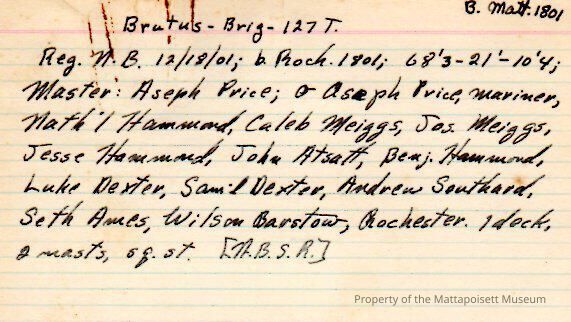 B. Matt. 1801
Brutus - Brig - 127 T.
Reg. N.B. 12/18/01; b. Roch. 1801; 68'3-21'-10'4;
Master: Aseph Price; O Aseph Price, mariner,
Nath'l Hammond, Caleb Meiggs, Jos. Meiggs,
Jesse Hammond, John Atsatt, Benj. Hammond,
Luke Dexter, Sam'l Dexter, Andrew Southard,
Seth Ames, Wilson Barstow, Rochester. 1 deck,
2 masts, sq. st. [N.B.S.R.]
Property of the Mattapoisett Museum